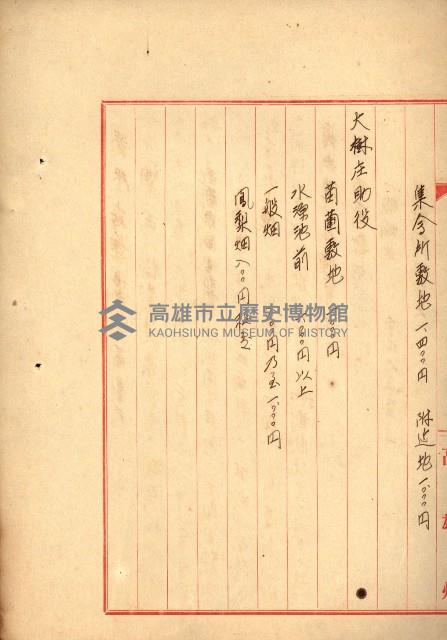 集会所敷地 一四〇〇円 附近地 一、〇〇〇円
大樹庄助役
苗圃敷地
水源池前 以上
一般畑 円乃至一、〇〇〇円
鳳梨畑 八〇〇円
高雄州
高雄市立歷史博物館
KAOHSIUNG MUSEUM OF HISTORY